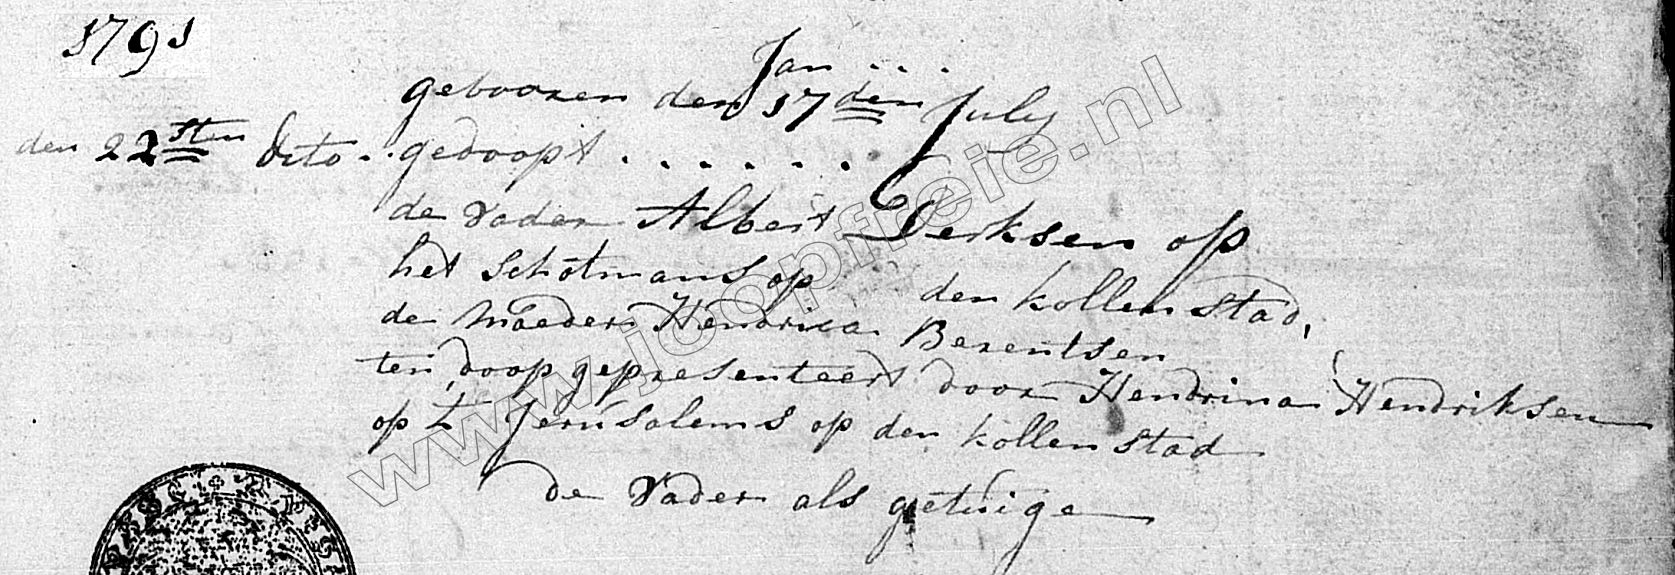 1791
Jan...
gebooren den 17den July
den 22sten dito.. gedoopt . . . . . . .
de Vader Albert Derksen op
het Schotmans op den kollenstad,
de Moeder Hendrica Berentsen
ten doop gepresenteert door Hendrina Hendriksen
op t Jerusalems op den kollenstad
de Vader als getuige
www.joopfreie.nl